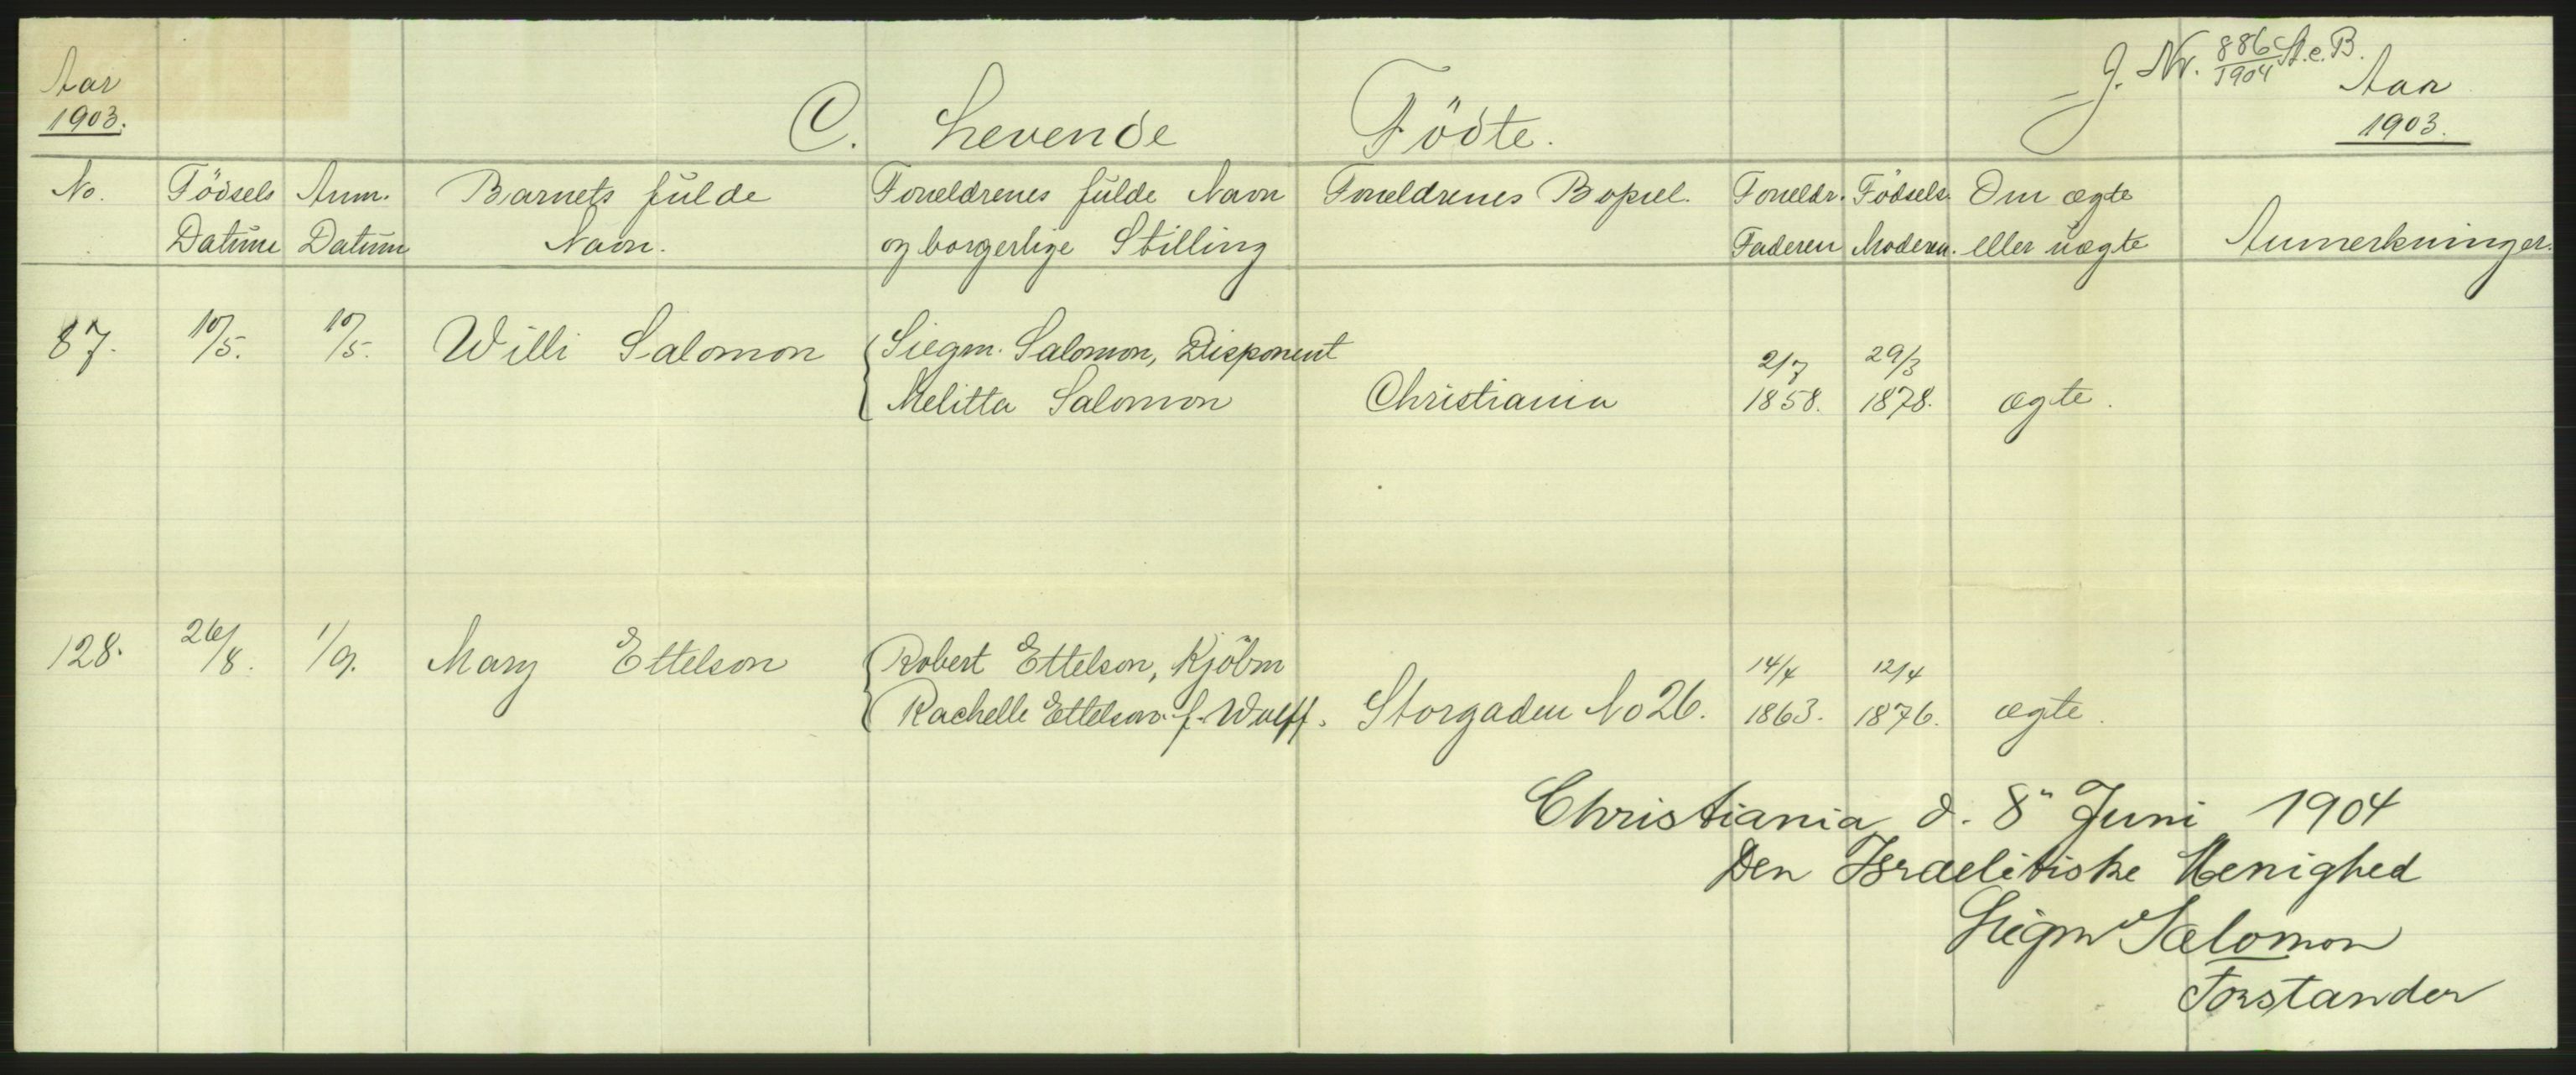 J. Nr. 886/1904 St. e. B.
Aar 1903.
Aar 1903.
C. Levende Födte.
No. Födsels Datum Anm. Datum Barnets fulde Navn. Foreldrenes fulde Navn og borgerlige Stilling Foreldrenes Bopæl. Foreldr. Faderen Födsels. Moderen. Om ægte eller uægte Anmerkninger.
87. 10/5. 10/5. Willi Salomon Siegm. Salomon, Disponent 2/7 29/3
Melitta Salomon Christiania 1858. 1878. ægte.
128. 26/8. 1/9. Mary Ettelson Robert Ettelson, Kjöbm 14/4 12/4
Rachelle Ettelson f. Wulff. Storgaden No 26. 1863. 1876. ægte.
Christiania d. 8" Juni 1904
Den Israelitiske Menighed
Siegm Salomon
Forstander